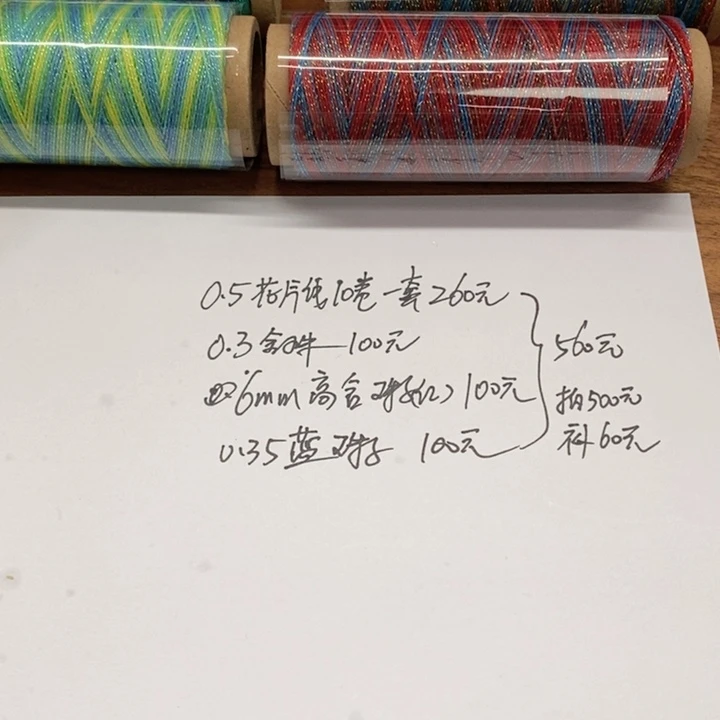 0.5花片线10卷一套260元
0.3金珠—100元
6mm高含珠子(红)100元
0.35蓝珠子 100元
560元
拍500元
补60元